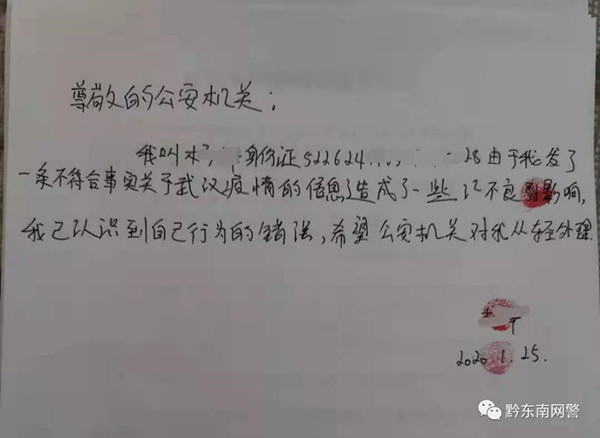 尊敬的公安机关;
我叫 身份证522624 28由于我发了
一条不符合事实关于武汉疫情的信息造成了一些 不良影响,
我已认识到自己行为的错误,希望公安机关对我从轻处理
2020.1.25.
黔东南网警